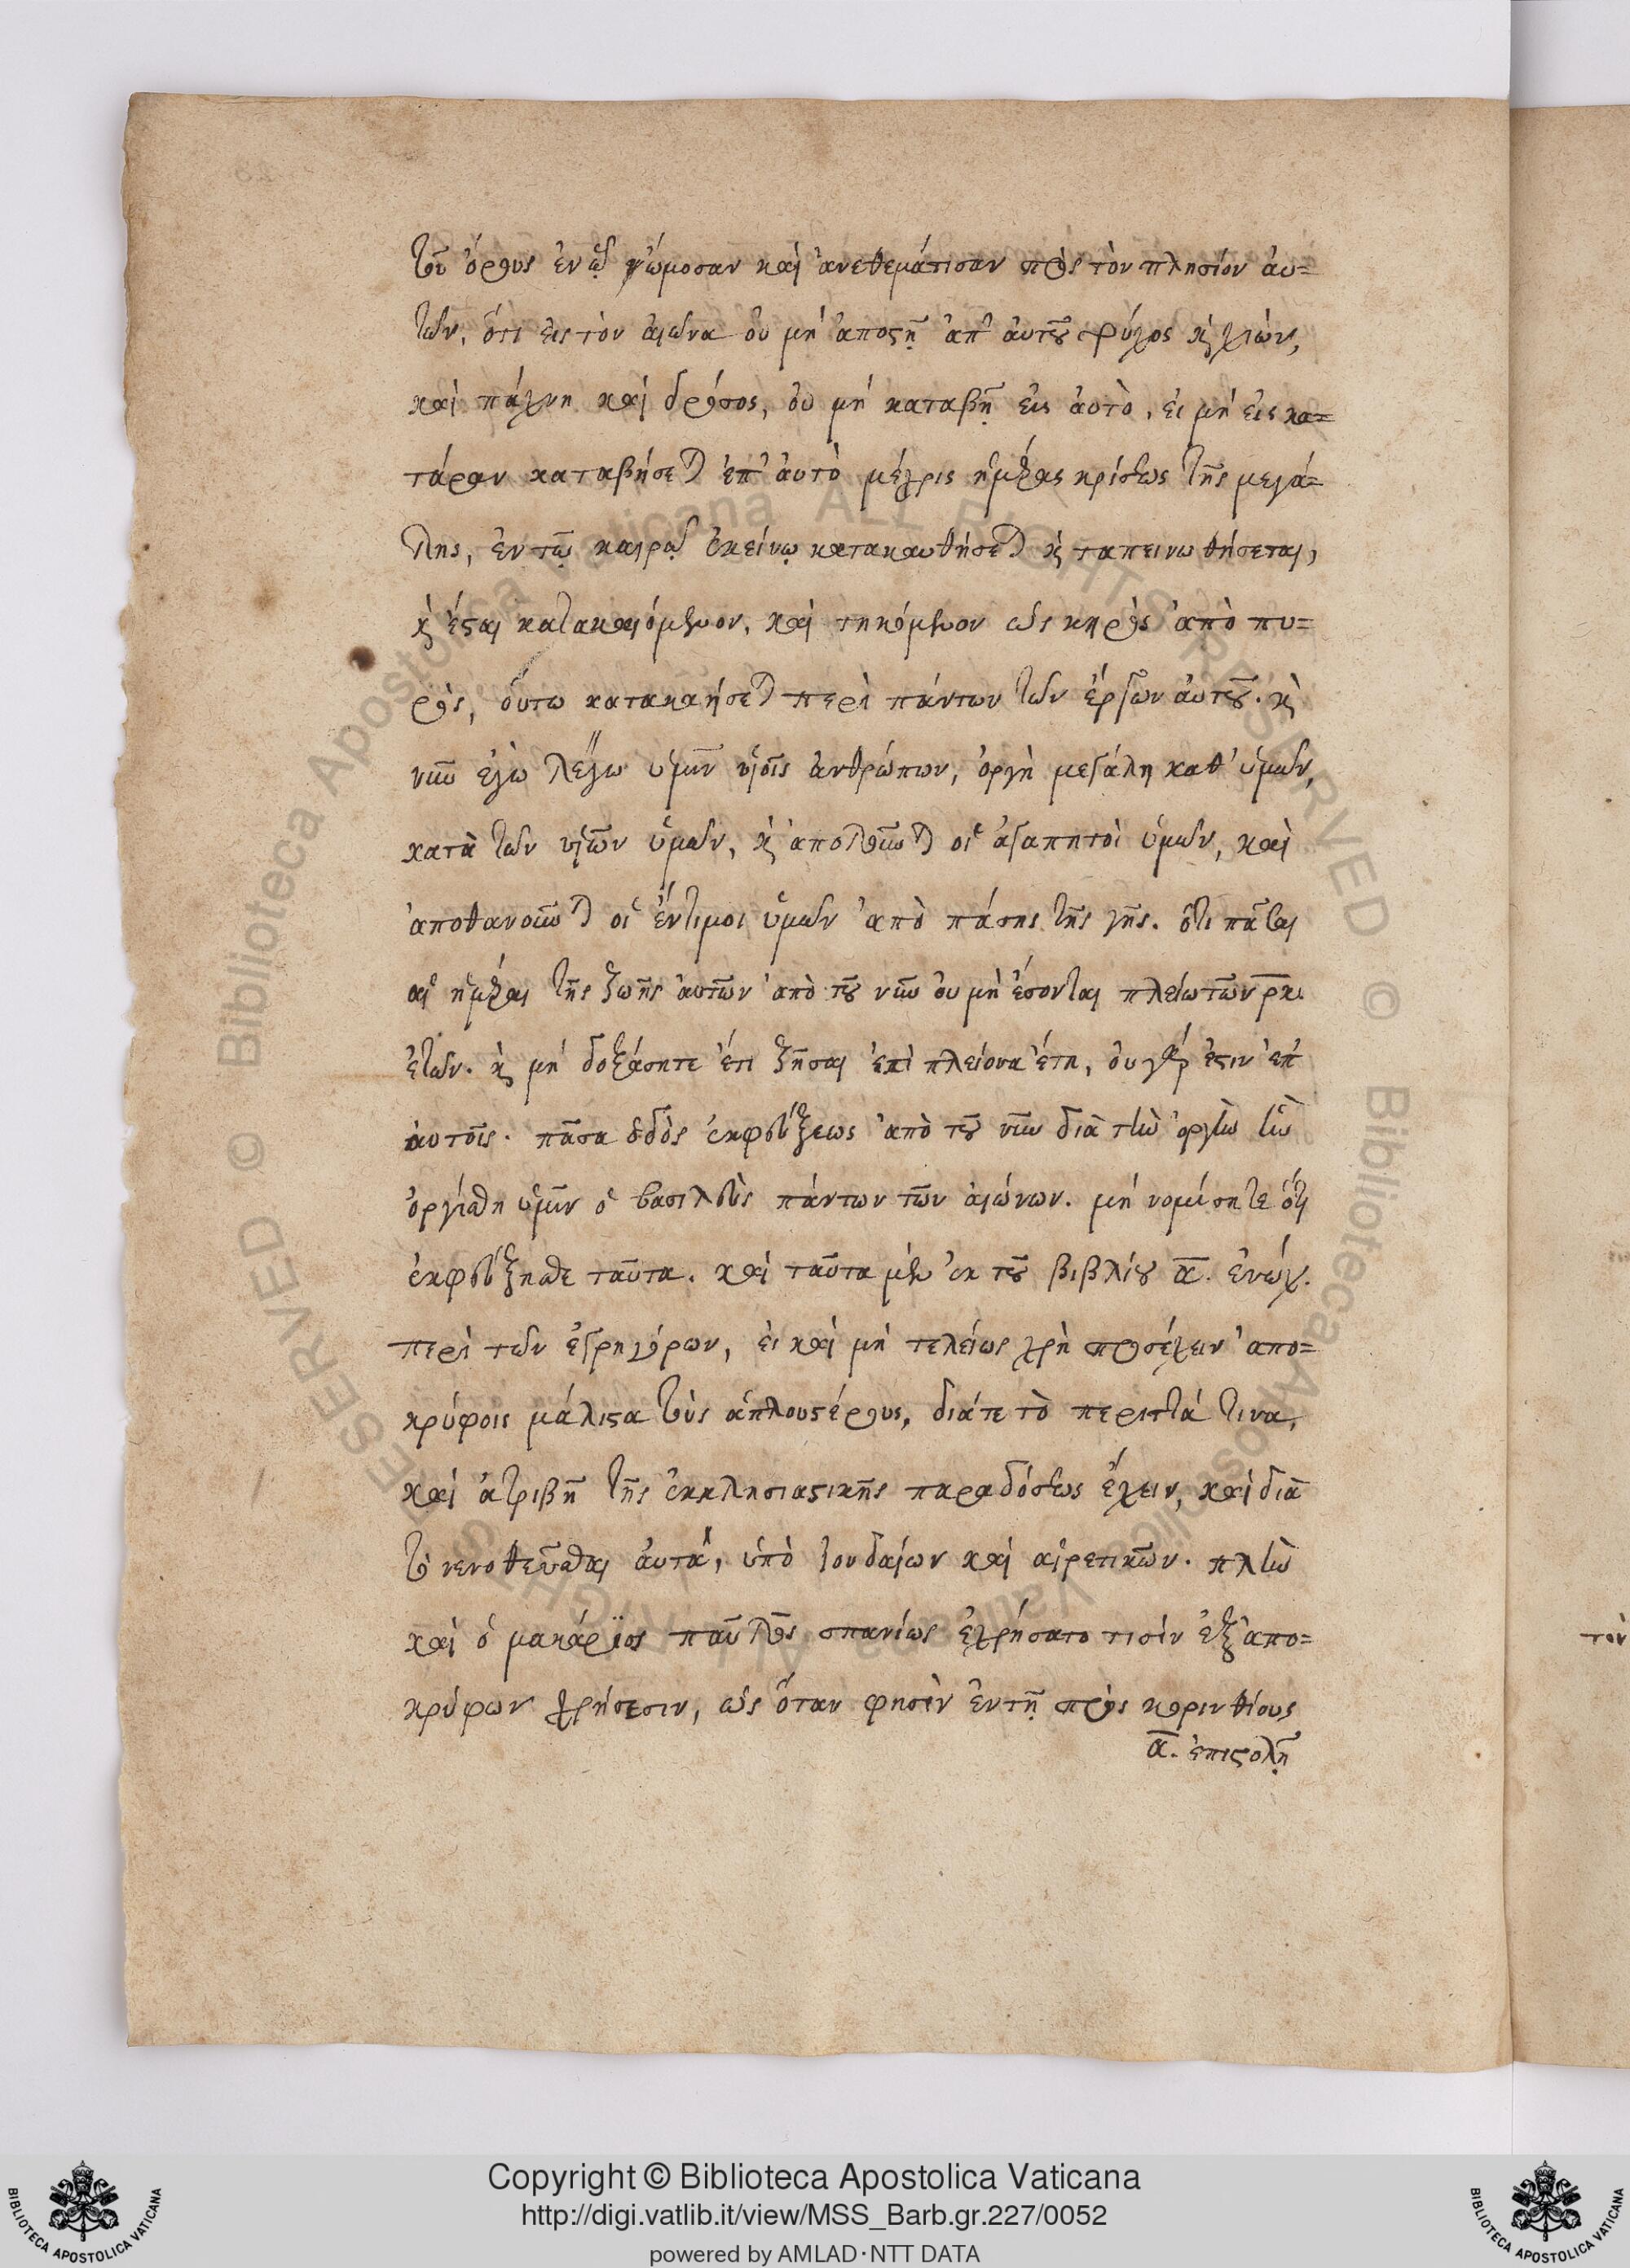 τοῦ ὄρους ἐν ᾧ ὤμοσαν καὶ ἀνεθεμάτισαν πρὸς τὸν πλησίον αὐ=
τῶν, ὅτι εἰς τὸν αἰῶνα οὐ μὴ ἀποστῇ ἀπ' αὐτοῦ ψύχος καὶ χιὼν,
καὶ πάχνη καὶ δρόσος, οὐ μὴ καταβῇ εἰς αὐτὸ, εἰ μὴ εἰς κα=
τάραν καταβήσεται ἐπ' αὐτὸ μέχρις ἡμέρας κρίσεως τῆς μεγά=
λης, ἐν τῷ καιρῷ ἐκείνῳ κατακαυθήσεται καὶ ταπεινωθήσεται,
καὶ ἔσται κατακαιόμενον, καὶ τηκόμενον ὡς κηρὸς ἀπὸ πυ=
ρὸς, οὕτω κατακαήσεται περὶ πάντων τῶν ἔργων αὐτοῦ. καὶ
νῦν ἐγὼ λέγω ὑμῖν υἱοῖς ἀνθρώπων, ὀργὴ μεγάλη καθ' ὑμῶν,
κατὰ τῶν υἱῶν ὑμῶν, καὶ ἀπολοῦνται οἱ ἀγαπητοὶ ὑμῶν, καὶ
ἀποθανοῦνται οἱ ἔντιμοι ὑμῶν ἀπὸ πάσης τῆς γῆς. ὅτι πᾶσαι
αἱ ἡμέραι τῆς ζωῆς αὐτῶν ἀπὸ τοῦ νῦν οὐ μὴ ἔσονται πλείω τῶν ρκ.
ἐτῶν. καὶ μὴ δοξάσητε ἔτι ζῆσαι ἐπὶ πλείονα ἔτη, οὐ γάρ ἐστιν ἐπ'
αὐτοῖς. πᾶσα ὁδὸς ἐκφεύξεως ἀπὸ τοῦ νῦν διὰ τὴν ὀργὴν ἣν
ὀργίσθη ὑμῖν ὁ βασιλεὺς πάντων τῶν αἰώνων. μὴ νομίσητε ὅτι
ἐκφεύξησθε ταῦτα. καὶ ταῦτα μὲν ἐκ τοῦ βιβλίου α. ἐνώχ.
περὶ τῶν ἐγρηγόρων, εἰ καὶ μὴ τελείως χρὴ προσέχειν ἀπο=
κρύφοις μάλιστα τοὺς ἁπλουστέρους, διά τε τὸ περιττά τινα,
καὶ ἀτριβῆ τῆς ἐκκλησιαστικῆς παραδόσεως ἔχειν, καὶ διὰ
τὸ νενοθεῦσθαι αὐτὰ, ὑπὸ ἰουδαίων καὶ αἱρετικῶν. πλὴν
καὶ ὁ μακάριος παῦλος σπανίως ἐχρήσατο τισὶν ἐξ ἀπο=
κρύφων χρήσεσιν, ὡς ὅταν φησὶν ἐν τῇ πρὸς κορινθίους
α. ἐπιστολῇ
τὸν
Copyright © Biblioteca Apostolica Vaticana
http://digi.vatlib.it/view/MSS_Barb.gr.227/0052
powered by AMLAD·NTT DATA
BIBLIOTECA APOSTOLICA VATICANA
BIBLIOTECA APOSTOLICA VATICANA
© Biblioteca Apostolica Vaticana ALL RIGHTS RESERVED
© Biblioteca Apostolica Vaticana ALL RIGHTS RESERVED